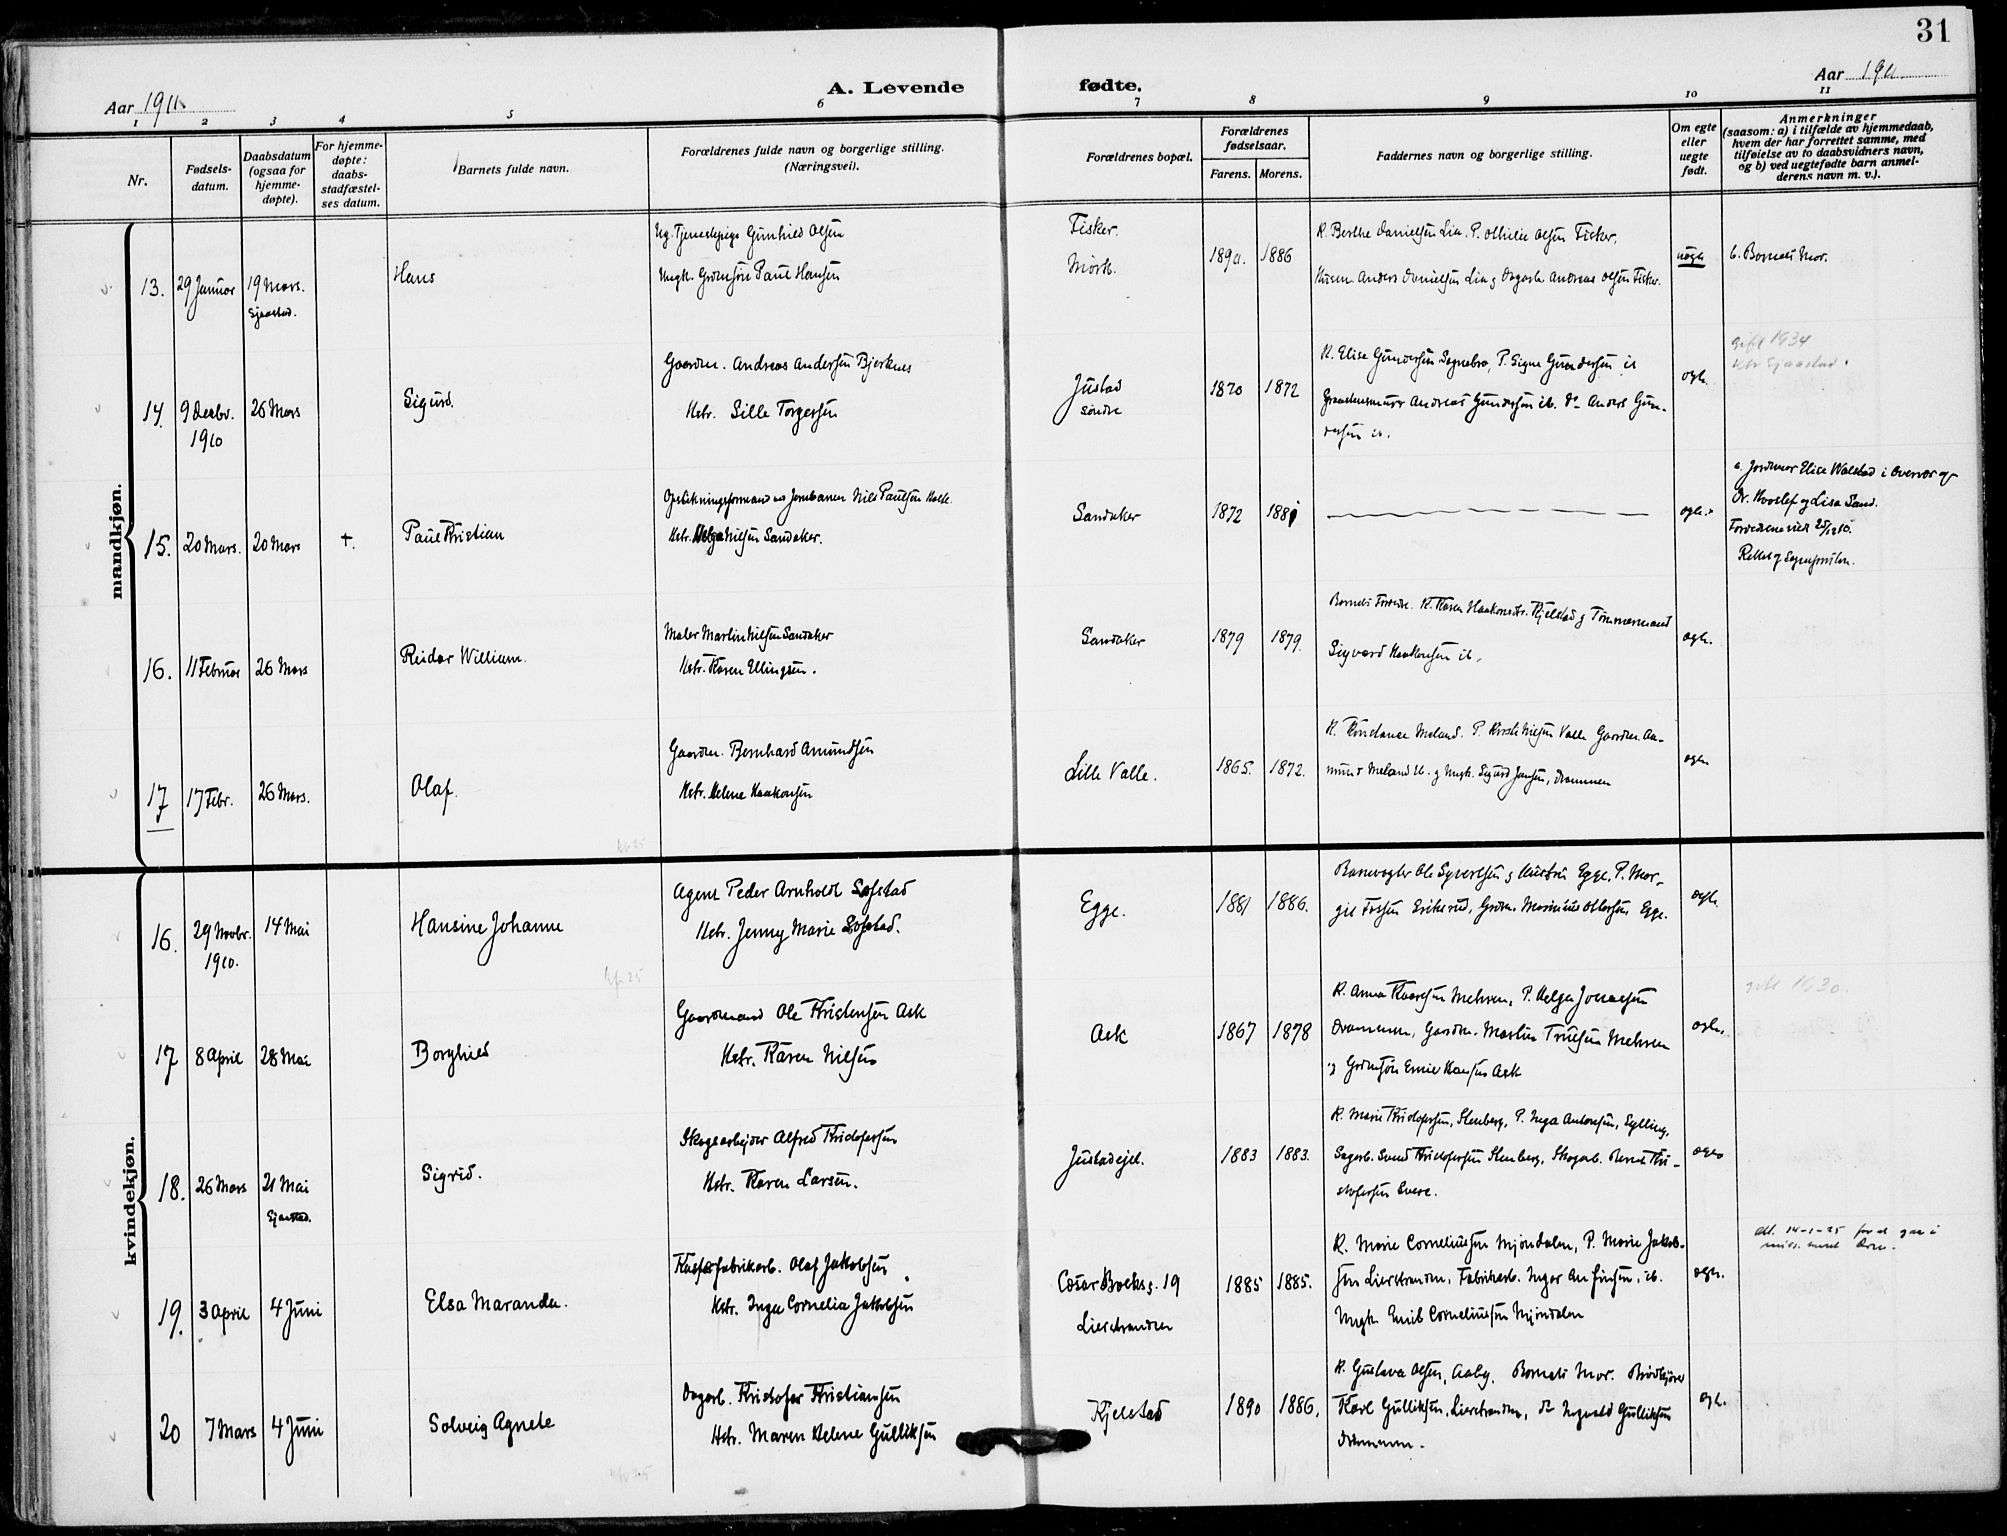 31
Aar 1911
A. Levende fødte.
Aar 1911
1 2 3 4 5 6 7 8 9 10 11
Nr.
Fødsels-
datum.
Daabsdatum
(ogsaa for
hjemme-
døpte).
For hjemme-
døpte:
daabs-
stadfæstel-
ses datum.
Barnets fulde navn.
Forældrenes fulde navn og borgerlige stilling.
(Næringsveil).
Forældrenes bopæl.
Forældrenes
fødselsaar.
Farens. Morens.
Faddernes navn og borgerlige stilling.
Om egte
eller
uegte
født.
Anmerkninger
(saasom: a) i tilfælde av hjemmedaab,
hvem der har forrettet samme, med
tilføielse av to daabsvidners navn,
og b) ved uegtefødte barn anmel-
derens navn m. v.).
mandkjøn.
13. 29 Januar 19 Mars.
Sjaastad.
Hans
Ug. Tjenestepige Gunhild Olsen
Ungk. Grdmsøn Paul Hansen
Fisker.
Mørk.
1890. 1886
K. Berthe Danielsen Lia. P. Othilie Olsen Fisker.
Husm. Anders Danielsen Lia og Dagarb. Andreas Olsen Fisker.
uegte
b. Barnets Mor.
14. 9 Decbr.
1910
26 Mars
Sigurd.
Gaardm. Andreas Andersen Bjerknes
Hstr. Sille Torgersen
Justad
søndre
1870 1872
K. Elise Gundersen Sognebro, P. Signe Gundersen ib
Andreas Gundersen ib. do Anders Gun-
dersen ib.
egte.
gift 1934
Sjaastad.
15. 20 Mars. 20 Mars †.
Paul Kristian
Opstikningsformand ved Jernbanen Nils Paulsen Holte.
Hstr. Helga Nilsen Sandaker.
Sandaker
1872 1881
egte.
a. Jordmor Elise Walstad i Overvær og
Dr. Kvoslef og Lisa Sand.
Forældrene viet 25/12 10.
16. 11 Februar 26 Mars
Reidar William.
Maler Martin Nilsen Sandaker
Hstr. Karen Ellingsen.
Sandaker
1879 1879.
Barnets Forældre. K. Karen Haakonsdtr. Kjelstad og Tømmermand
Sigvard Haakonsen ib.
egte.
17 17 Febr. 26 Mars.
Olaf.
Gaardm. Bernhard Amundsen
Hstr. Helene Haakonsen
Lille Valle.
1865. 1872.
K. Konstance Meland. P. Kirsti Nilsen Valle Gaardm. Aa-
mund Meland ib. og Ungk. Sigurd Jansen, Drammen
egte
kvindekjøn.
16. 29 Novbr.
1910.
14 Mai
Hansine Johanne
Agent Peder Arnholdt Sofstad
Hstr. Jenny Marie Sofstad.
Egge.
1881 1886.
Banevogter Ole Syvertsen og Hustru Egge. P. Mar-
git Fossen Eriksrud, Grdm. Marinius Ottersen Egge.
egte.
17 8 April 28 Mai
Borghild
Gaardmand Ole Kristensen Ask
Hstr. Karen Nilsen
Ask
1867 1878
K. Anna Kaaresen Mehren, P. Helga Jonassen
Drammen, Gaardm. Martin Truesen Mehren
og Grdmsøn Emil Hansen Ask
egte.
gift 1930.
18. 26 Mars 21 Mai
Sjaastad.
Sigrid.
Skogsarbeider Alfred Kristofersen
Hstr. Karen Larsen.
Justadejet.
1883 1883.
K. Marie Kristofersen, Stenberg, P. Inga Antonsen, Sylling,
Sagarb. Svend Kristofersen Stenberg, Skogarb. Bernt Kri-
stofersen Svere.
egte
19. 3 April 4 Juni
Elsa Marander.
Kassefabrikarb. Olaf Jakobsen
Hstr. Inga Cornelia Jakobsen
Cæsar Boeksg. 19
Lierstranden
1885 1885.
K. Marie Corneliussen Mjøndalen, P. Marie Jakob-
sen Lierstranden, Fabrikarb. Ingar Anfinsen, ib.
Ungk. Emil Corneliussen Mjøndalen
egte.
Att. 14-1-25 for at gaa i
20 7 Mars 4 Juni
Solveig Agnete
Dagarb. Kristofer Kristiansen
Hstr. Maren Helene Gulliksen
Kjelstad
1890 1886.
K. Gustava Olsen, Aaby. Barnets Mor. Brødkjører
Karl Gulliksen, Lierstranden, do Ingvald Gulliksen
Drammen.
egte.